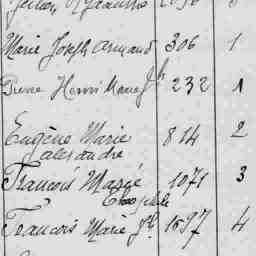 Marie Joseph Armand 306 1
Pierre Henri Marie Jh 232 1
Eugène Marie 814 2
alexandre
François Marie 1071 3
Théophile
François Marie Jh 1597 4